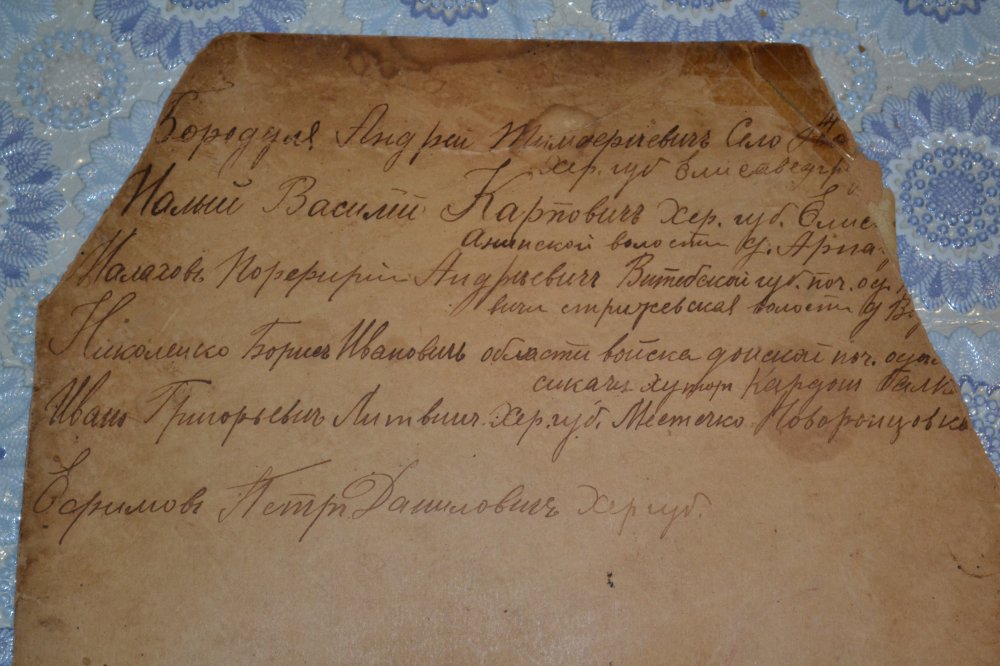 Бороддуля Андрей Тимофеевичъ Село
Хер. губ Елисаведгр
Малый Василий Карповичъ Хер. губ. Елис
Анинской волости д. Арпа
Малаговъ Порфирий Андрѣевичъ Витебской губ. поч. ос.
вичи стрижевская волости д В.
Николенко Борисъ Ивановичъ области войска донской поч.
сикачи хутор Кардош Балк
Иванъ Григорьевич Литвин Хер. губ. Местечко Новоронцовк
Ефимовъ Петръ Даниловичъ Хер губ.